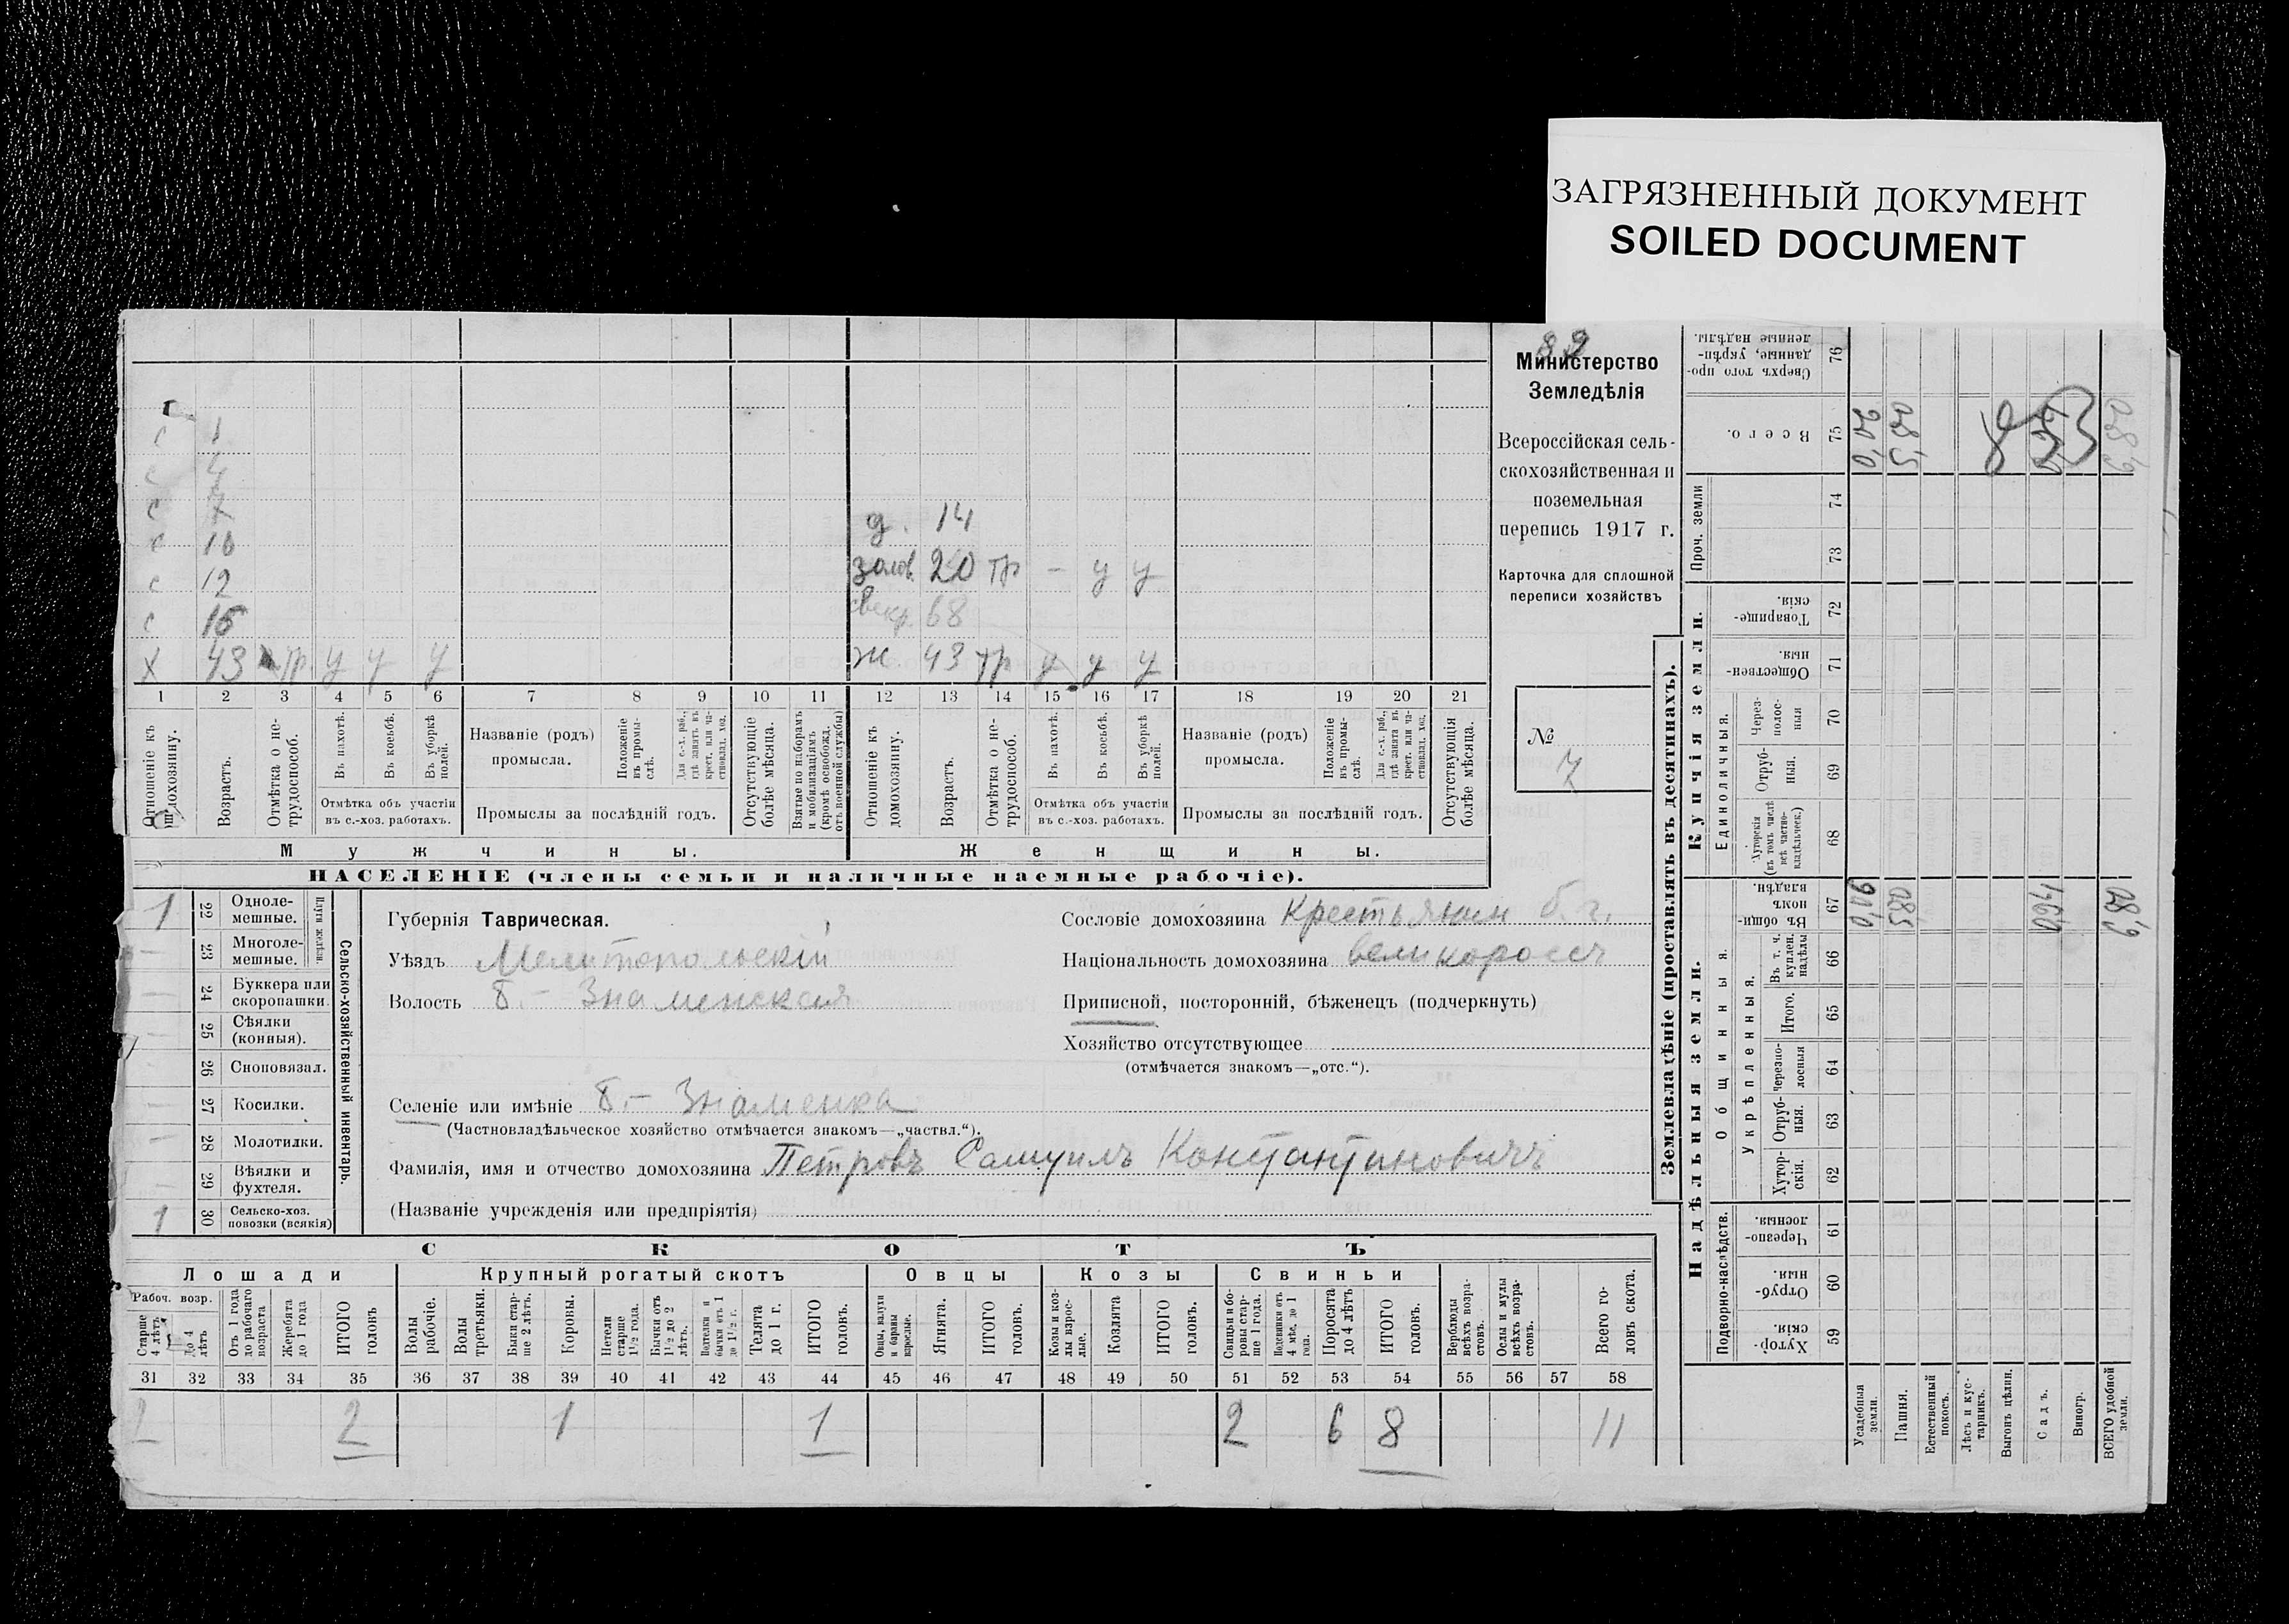 ЗАГРЯЗНЕННЫЙ ДОКУМЕНТ
SOILED DOCUMENT
Министерство
Земледѣлія
Всероссійская сель-
скохозяйственная и
поземельная
перепись 1917 г.
Карточка для сплошной
переписи хозяйствъ
№
7
с 1
с 4
с 7
с 10
с 12
с 15
х 43 тр. у у у
д. 14
золов. 20 тр – у у
свекр. 68
ж 43 тр у у у
1 2 3 4 5 6 7 8 9 10 11 12 13 14 15 16 17 18 19 20 21
Отношеніе къ домохозяину.
Возрастъ.
Отмѣтка о не-трудоспособ.
Въ пахотѣ.
Въ косьбѣ.
Въ уборкѣ полей.
Отмѣтка объ участіи
въ с.-хоз. работахъ.
Названіе (родъ)
промысла.
Положеніе въ промы-слѣ.
Для с.-х. раб., гдѣ занятъ въ крест. или ча-стновлад. хоз.
Промыслы за послѣдній годъ.
Отсутствующіе болѣе мѣсяца.
Взятые по наборамъ и мобилизаціямъ (кромѣ освобожд. отъ военной службы)
Отношеніе къ домохозяину.
Возрастъ.
Отмѣтка о не-трудоспособ.
Въ пахотѣ.
Въ косьбѣ.
Въ уборкѣ полей.
Отмѣтка объ участіи
въ с.-хоз. работахъ.
Названіе (родъ)
промысла.
Положеніе въ промы-слѣ.
Для с.-х. раб., гдѣ занята въ крест. или ча-стновлад. хоз.
Промыслы за послѣдній годъ.
Отсутствующія болѣе мѣсяца.
Мужчины.
Женщины.
НАСЕЛЕНІЕ (члены семьи и наличные наемные рабочіе).
Сельско-хозяйственный инвентарь.
Плуги желѣзн.
1 22 Одноле-мешные.
– 23 Многоле-мешные.
– 24 Буккера или скоропашки.
– 25 Сѣялки (конныя).
– 26 Сноповязал.
– 27 Косилки.
– 28 Молотилки.
– 29 Вѣялки и фухтеля.
1 30 Сельско-хоз. повозки (всякія)
Губернія Таврическая.
Уѣздъ Мелитопольскій
Волость Б.- Знаменская
Селеніе или имѣніе Б.- Знаменка
(Частновладѣльческое хозяйство отмѣчается знакомъ—„частвл.“).
Фамилія, имя и отчество домохозяина Петровъ Самуилъ Константиновичъ
(Названіе учрежденія или предпріятія)
Сословіе домохозяина Крестьянин
Національность домохозяина великороссъ
Приписной, посторонній, бѣженецъ (подчеркнуть)
Хозяйство отсутствующее
(отмѣчается знакомъ—„отс.“).
СКОТЪ
Лошади
Крупный рогатый скотъ
Овцы
Козы
Свиньи
Рабоч. возр.
Старше 4 лѣтъ
До 4 лѣтъ
Отъ 1 года до рабочаго возраста
Жеребята до 1 года
ИТОГО головъ
Волы рабочіе.
Волы третьяки.
Быки стар-ше 2 лѣтъ.
Коровы.
Нетели старше 1½ года.
Бычки отъ 1½ до 2 лѣтъ.
Телята до 1 г.
ИТОГО головъ.
Овцы, валухи и бараны взрослые.
Ягнята.
ИТОГО головъ.
Козы и коз-лы взрос-лые.
Козлята
ИТОГО головъ.
Свиньи и бо-ровы стар-ше 1 года.
Подсвинки отъ 4 мѣс. до 1 года.
Поросята до 4 лѣтъ
ИТОГО головъ.
Верблюды всѣхъ возра-стовъ.
Ослы и мулы всѣхъ возра-стовъ.
Всего го-ловъ скота.
31 32 33 34 35 36 37 38 39 40 41 42 43 44 45 46 47 48 49 50 51 52 53 54 55 56 57 58
2 2 1 1 2 6 8 11
Землевладѣніе (проставлять въ десятинахъ).
Надѣльныя земли.
Купчія земли.
Проч. земли
Подворно-наслѣдств.
Общинныя.
Укрѣпленныя.
Единоличныя.
Сверхъ того про-данные, укрѣп-ленные надѣлы. 76
Всего. 75
74
73
Товарище-скія. 72
Обществен-ныя. 71
Через-полос-ныя 70
Отруб-ныя. 69
Хуторскія (въ томъ числѣ всѣ частно-владѣльческ.) 68
Въ общин-номъ владѣн. 67
Въ т. ч. куплен. надѣлы 66
Итого. 65
Черезпо-лосныя 64
Отруб-ныя. 63
Хутор-скія. 62
Черезпо-лосныя. 61
Отруб-ныя. 60
Хутор-скія. 59
Усадебныя земли.
Пашня.
Естественный покосъ.
Лѣсъ и кус-тарникъ.
Выгонъ цѣлин.
Садъ.
Виногр.
ВСЕГО удобной земли.